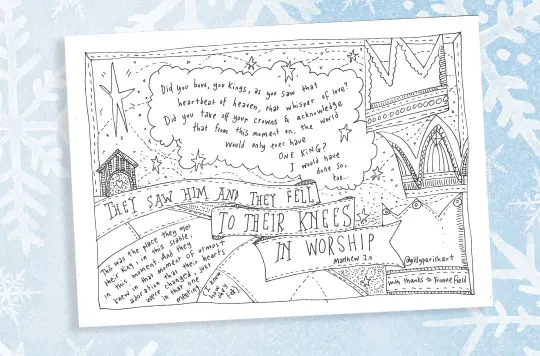 Did you bow, you Kings, as you saw that
heartbeat of heaven, that whisper of love?
Did you take off your crowns & acknowledge
that from this moment on, the world
would only ever have
ONE KING?
I would have
done so,
too...
THEY SAW HIM AND THEY FELL
TO THEIR KNEES
IN WORSHIP
Matthew 2:11
This was the place they met
their King: in this stable,
in this moment. And they
knew in that moment of utmost
adoration that their hearts
were changed, just
in that one
meeting.
I know
how
they
felt.
@gillyparishart
with thanks to Yvonne Field